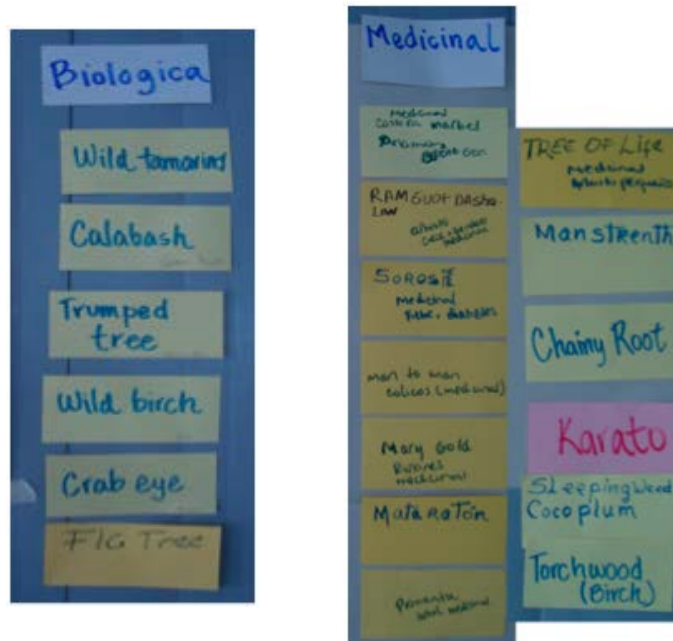 Biologica
Wild tamarind
Calabash
Trumped
tree
Wild birch
Crab eye
FIG Tree
Medicinal
Medicinal
RAM GUOT DASha-
LAW
medicinal
SOROSIE
Medicinal
diabetes
man to man
colicos (medicinal)
Mary Gold
medicinal
MataRaTón
TREE OF Life
Medicinal
Manstrenth
Chainy Root
Karato
SLeeping Weed
Cocoplum
Torchwood
(Birch)